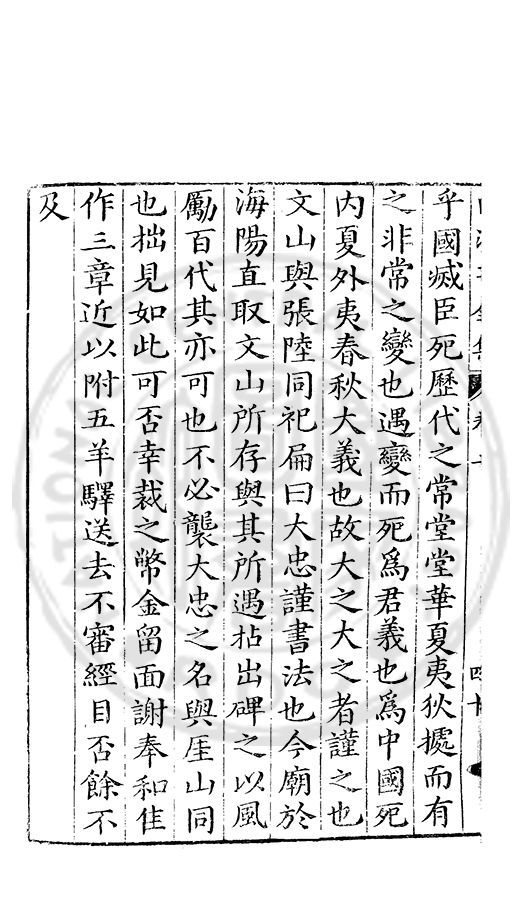 乎國滅臣死歷代之常堂堂華夏夷狄據而有
之非常之變也遇變而死爲君義也爲中國死
內夏外夷春秋大義也故大之大之者謹之也
文山與張陸同祀扁曰大忠謹書法也今廟於
海陽直取文山所存與其所遇拈出碑之以風
勵百代其亦可也不必襲大忠之名與厓山同
也拙見如此可否幸裁之幣金留面謝奉和佳
作三章近以附五羊驛送去不審經目否餘不
及